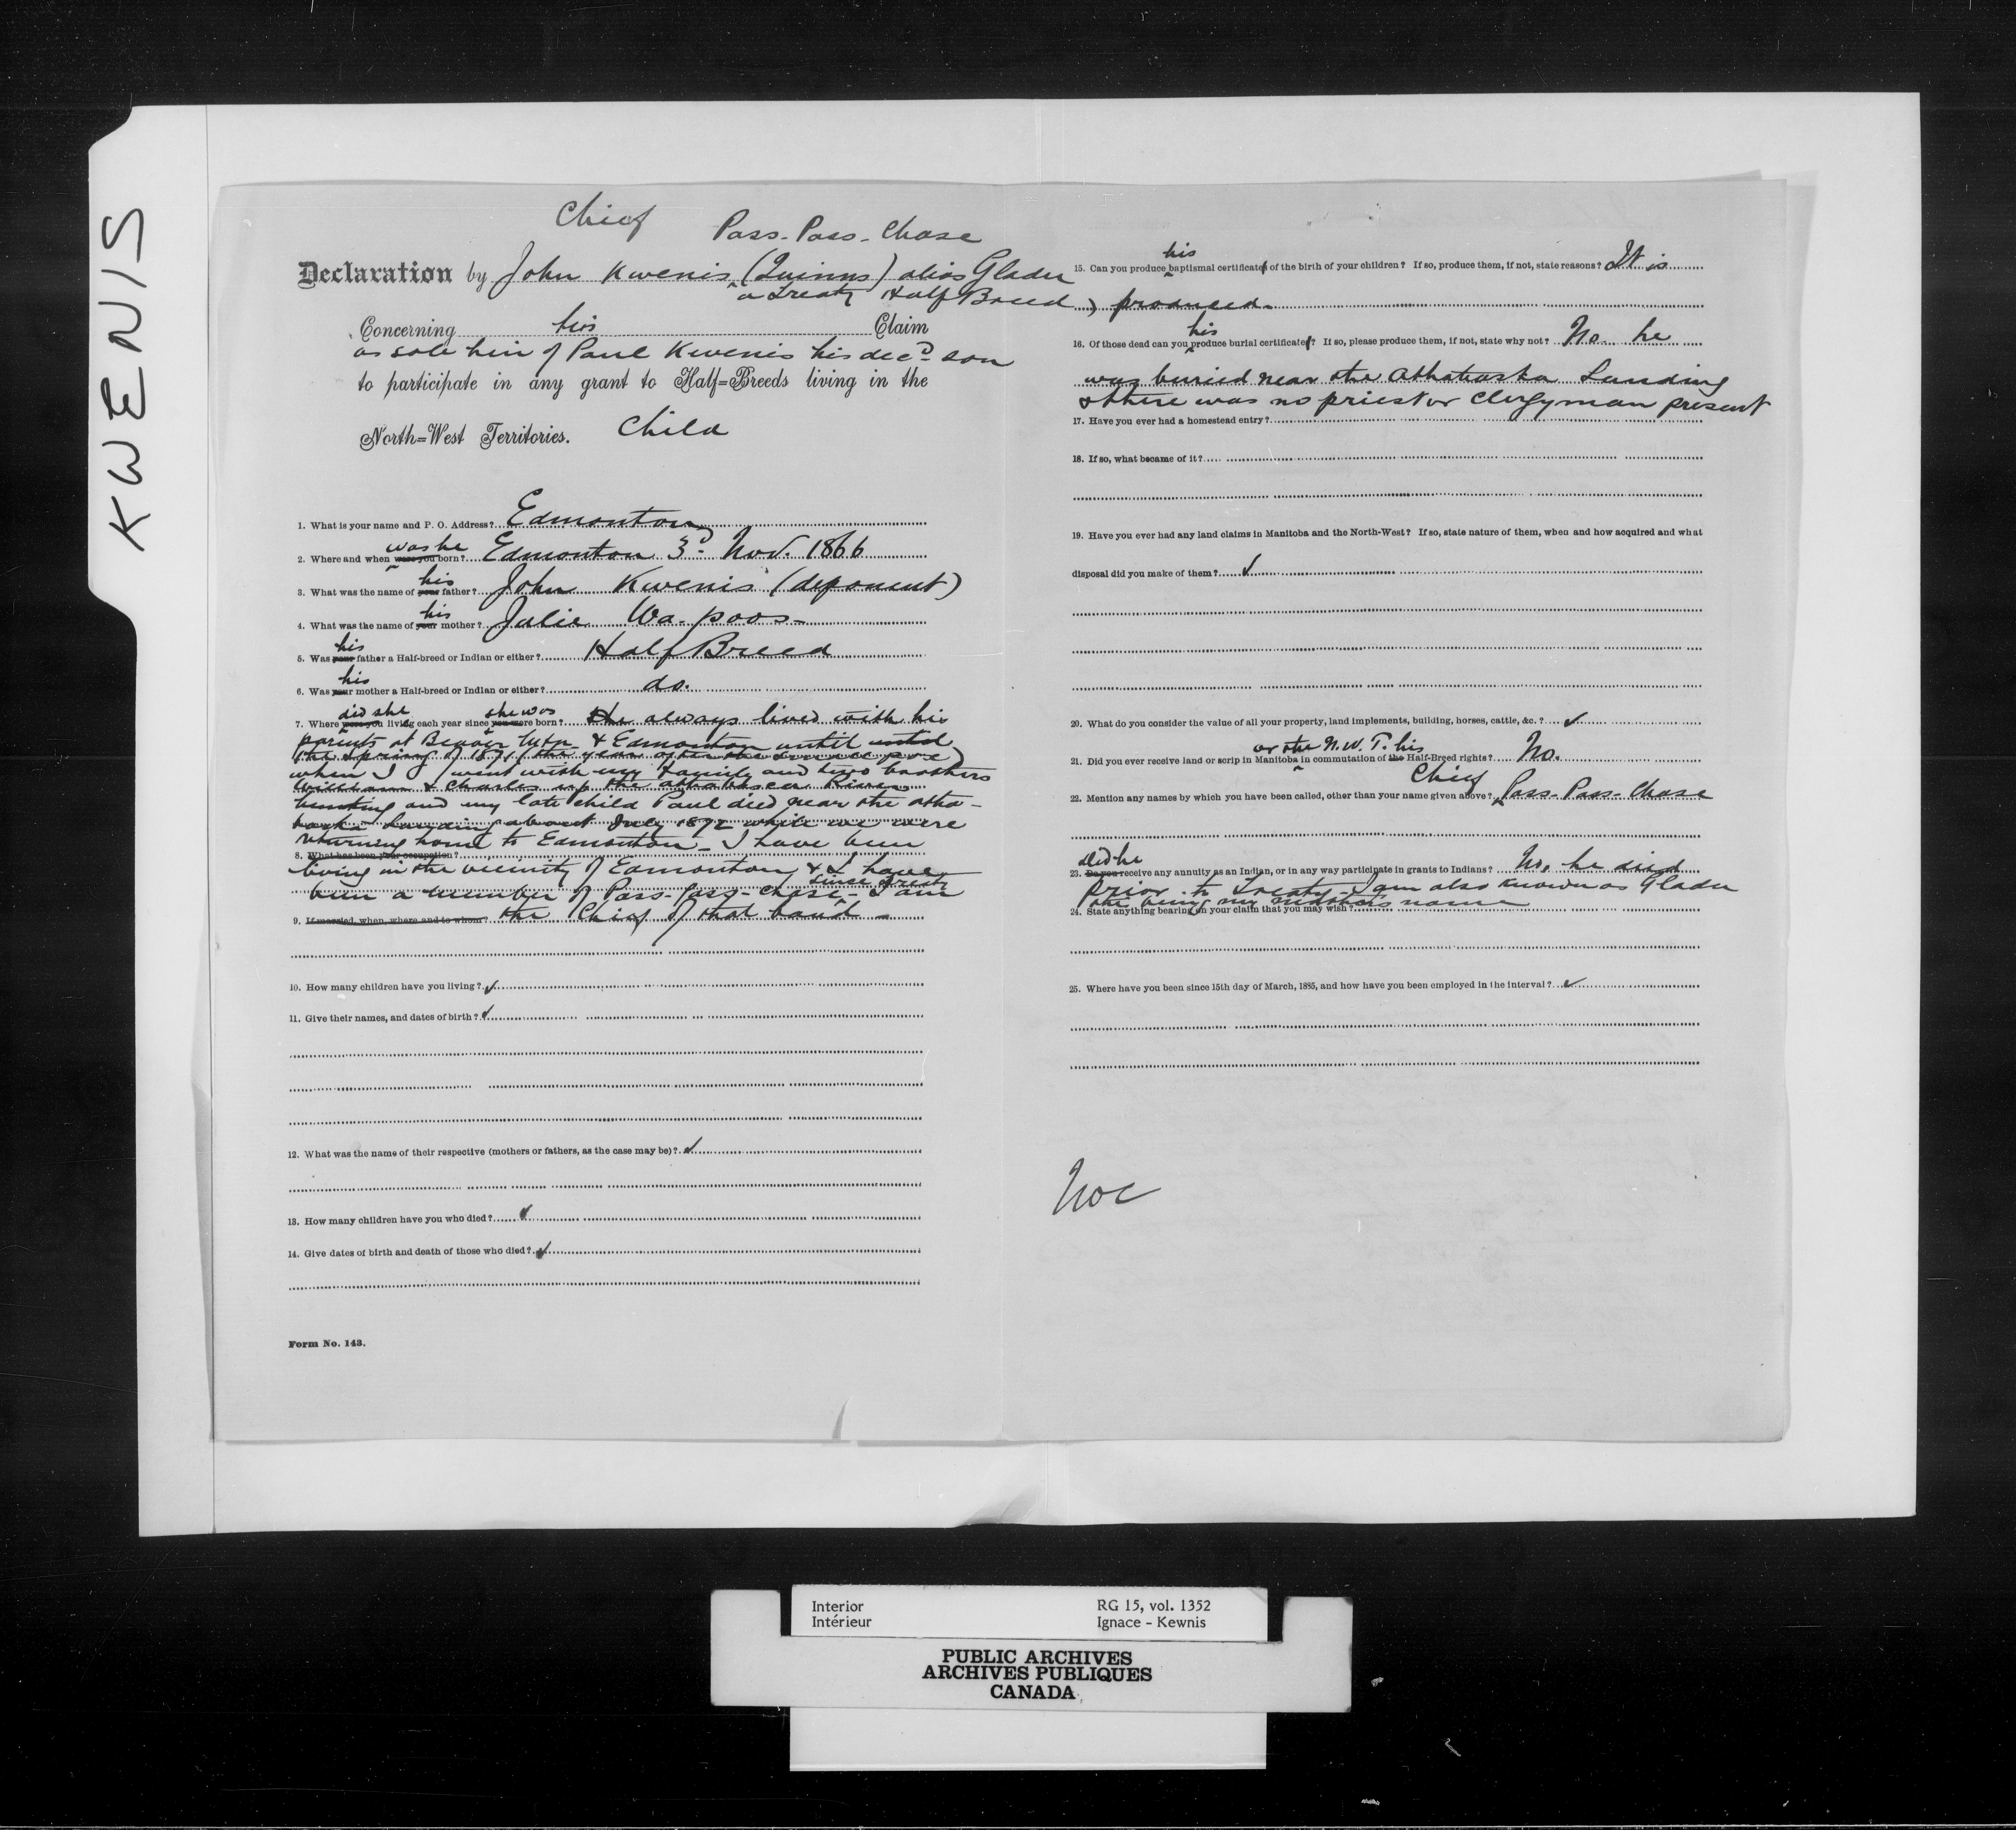 KWENIS
Chief Pass-Pass-Chase
Declaration by John Kwenis (Quinns) alias Gladu
a Treaty Half Breed
Concerning his Claim
as sole heir of Paul Kwenis his decd son
to participate in any grant to Half=Breeds living in the
North=West Territories. Child
1. What is your name and P. O. Address? Edmonton
was he
2. Where and when were you born? Edmonton 3d Nov. 1866
his
3. What was the name of your father? John Kwenis (deponent)
his
4. What was the name of your mother? Julie Wa-poos-
his
5. Was your father a Half-breed or Indian or either? Half Breed
his
6. Was your mother a Half-breed or Indian or either? do.
did she she was
7. Where were you living each year since you were born? He always lived with his
parents at Beaver & Edmonton until
the Spring of 1871 (the year after the pox)
when I went with my family and two brothers
William & Charles up the Athabasca River
hunting and my late child Paul died near the Atha-
baska Landing about July 1872 while we were
returning home to Edmonton - I have been
8. What has been your occupation?
living in the vicinity of Edmonton & I have
since Treaty
been a member of Pass-Pass-Chase- I am
9. If married, when, where and to whom? the Chief of that band -
10. How many children have you living? ✓
11. Give their names, and dates of birth? ✓
12. What was the name of their respective (mothers or fathers, as the case may be)? ✓
13. How many children have you who died? ✓
14. Give dates of birth and death of those who died? ✓
Form No. 143.
his
15. Can you produce baptismal certificates of the birth of your children? If so, produce them, if not, state reasons? It is
produced.
his
16. Of those dead can you produce burial certificates? If so, please produce them, if not, state why not? No. he
was buried near the Athabaska Landing
& there was no priest or clergyman present
17. Have you ever had a homestead entry?
18. If so, what became of it?
19. Have you ever had any land claims in Manitoba and the North-West? If so, state nature of them, when and how acquired and what
disposal did you make of them? ✓
20. What do you consider the value of all your property, land implements, building, horses, cattle, &c.? ✓
or the N.W.T. his
21. Did you ever receive land or scrip in Manitoba in commutation of the Half-Breed rights? No.
Chief
22. Mention any names by which you have been called, other than your name given above? Pass-Pass-Chase
Did he
23. Do you receive any annuity as an Indian, or in any way participate in grants to Indians? No, he died
prior to Treaty - I am also known as Gladu
24. State anything bearing on your claim that you may wish?
this being my mother's name
25. Where have you been since 15th day of March, 1885, and how have you been employed in the interval? ✓
Interior RG 15, vol. 1352
Intérieur Ignace - Kewnis
PUBLIC ARCHIVES
ARCHIVES PUBLIQUES
CANADA